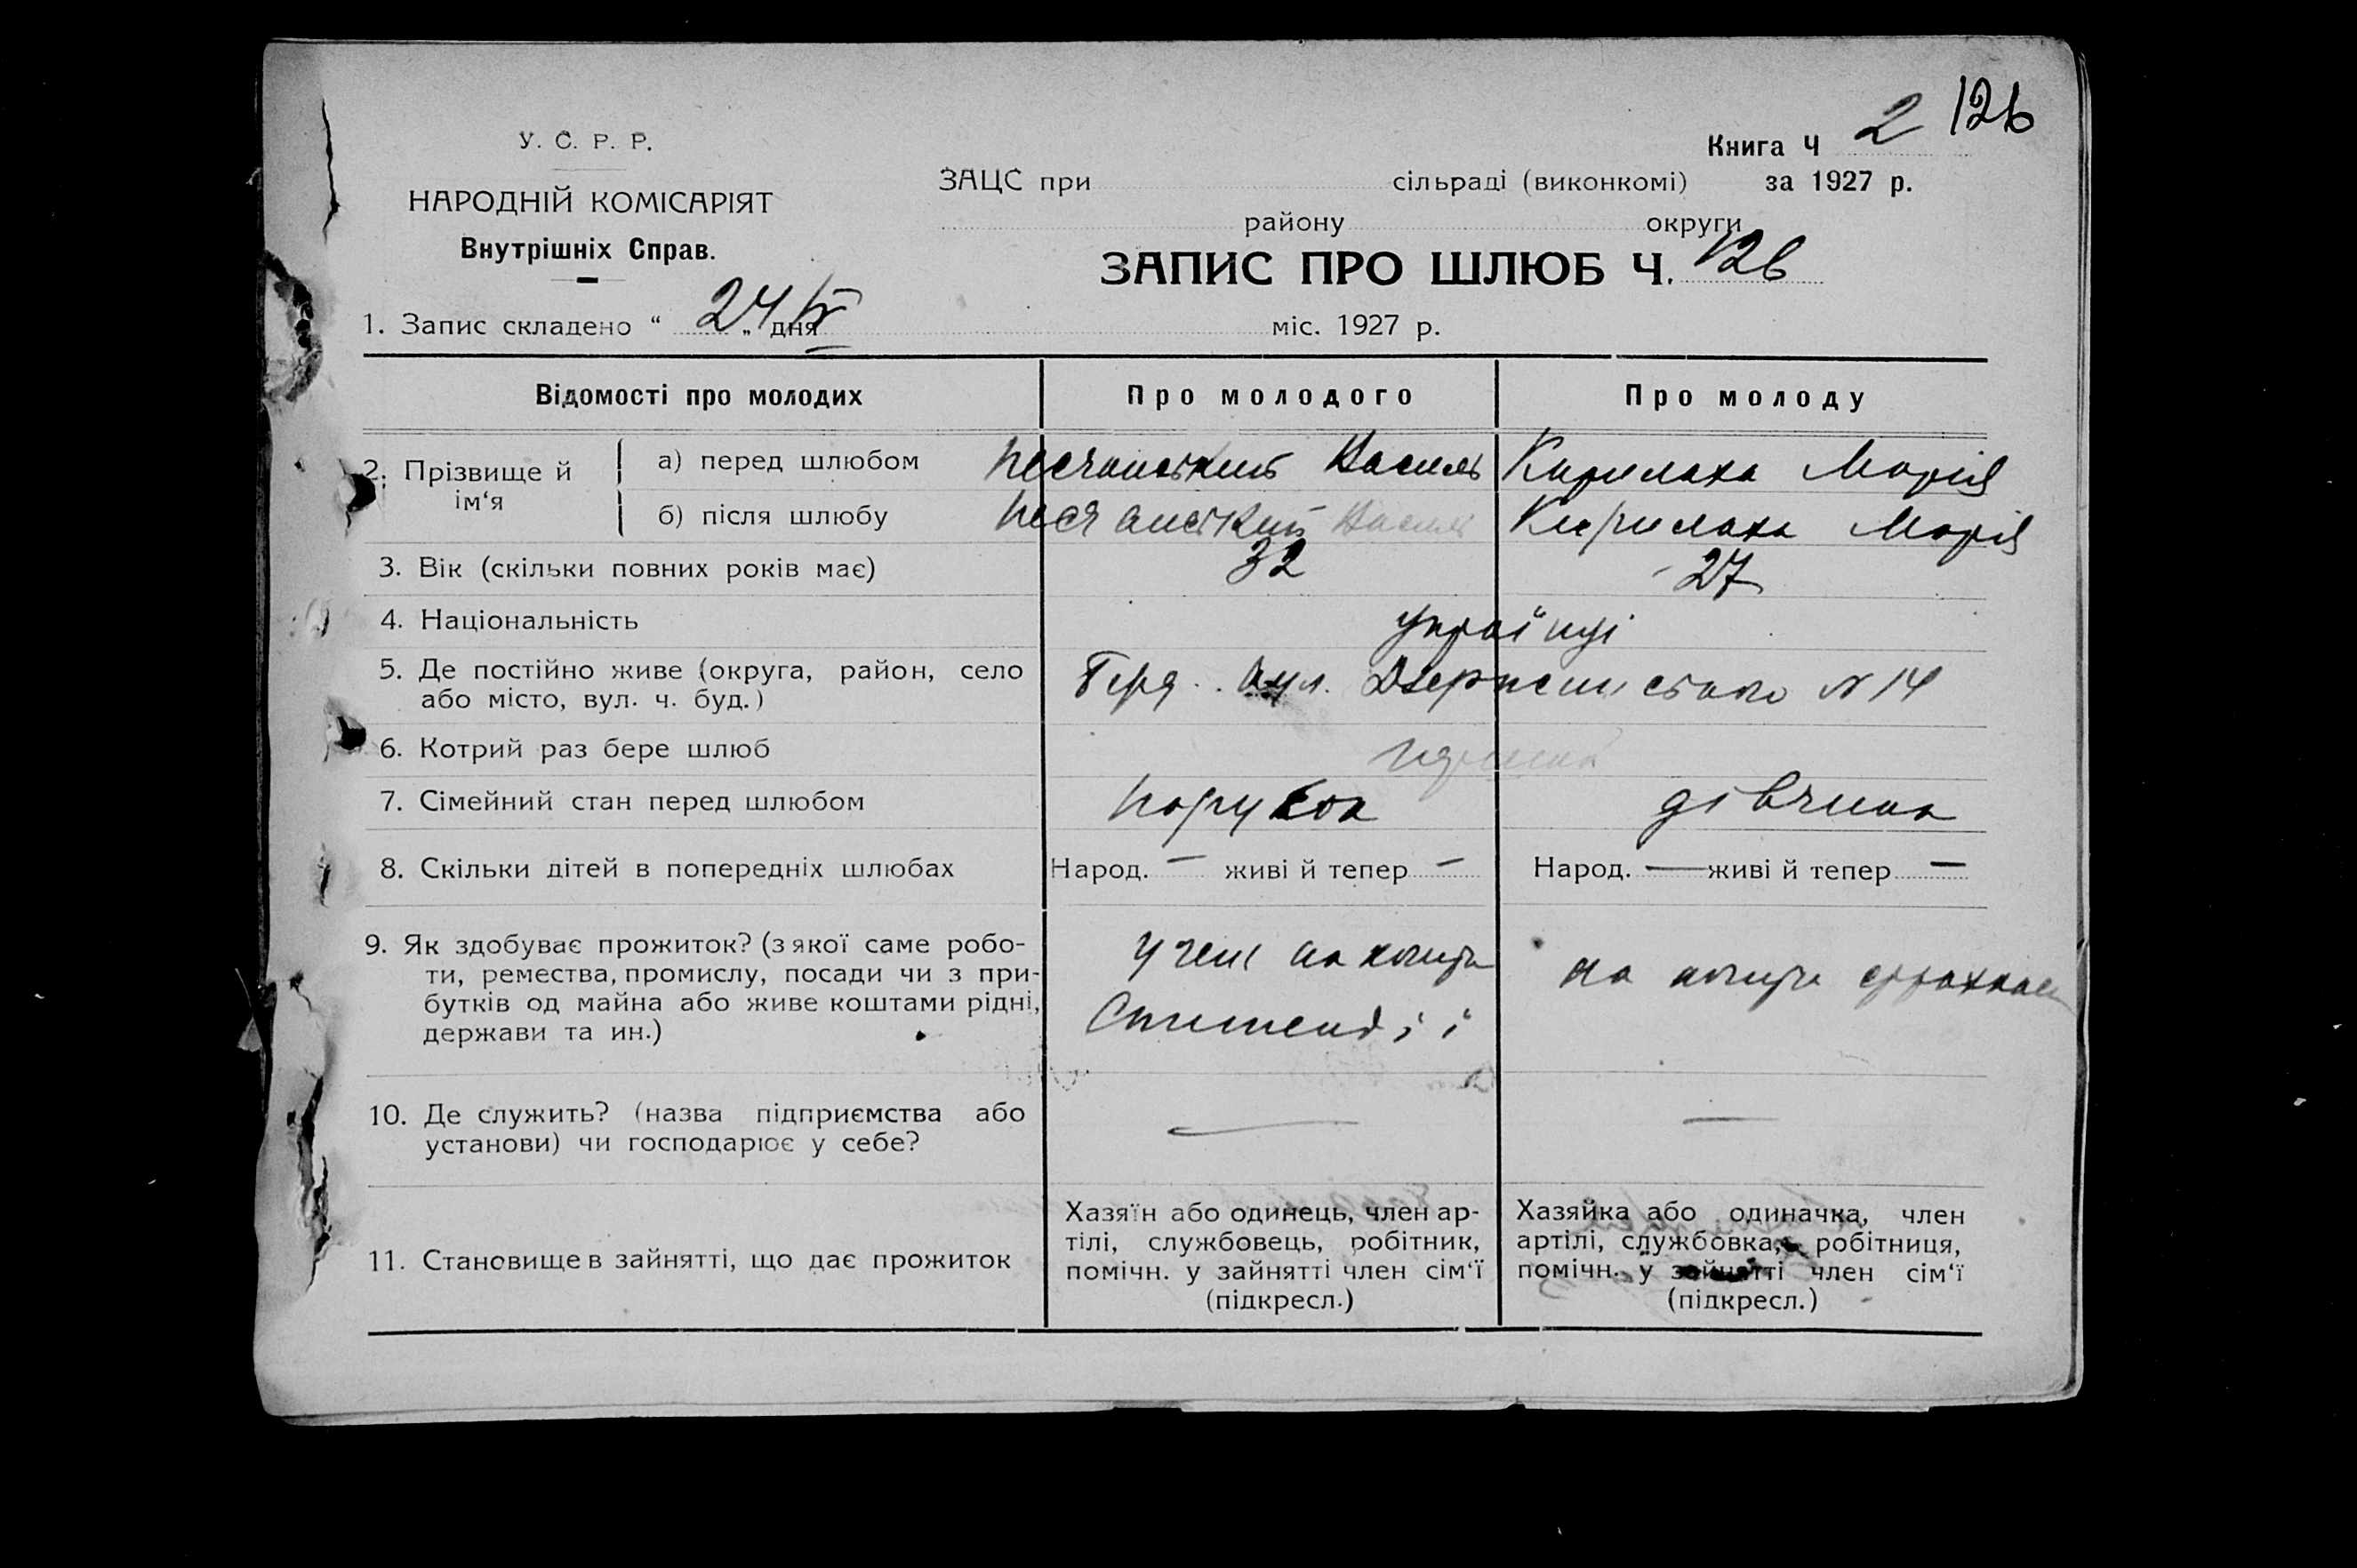 126
У. С. Р. Р.
Книга Ч 2
НАРОДНІЙ КОМІСАРІЯТ
ЗАЦС при сільраді (виконкомі) за 1927 р.
району округи
Внутрішніх Справ.
ЗАПИС ПРО ШЛЮБ Ч. 126
1. Запис складено “ 24 „ дня IV міс. 1927 р.
Відомості про молодих
Про молодого
Про молоду
2. Прізвище й ім‘я
а) перед шлюбом
Песчанський Василь
Кирилаха Марія
б) після шлюбу
Песчанський Василь
Кирилаха Марія
3. Вік (скільки повних років має)
32
27
4. Національність
українці
5. Де постійно живе (округа, район, село
або місто, вул. ч. буд.)
вул. Дзержинського № 14
6. Котрий раз бере шлюб
7. Сімейний стан перед шлюбом
парубок
дівчина
8. Скільки дітей в попередніх шлюбах
Народ. — живі й тепер —
Народ. — живі й тепер —
9. Як здобуває прожиток? (з якої саме робо-
ти, ремества, промислу, посади чи з при-
бутків од майна або живе коштами рідні,
держави та ин.)
на кошти
Стипендії
на кошти
10. Де служить? (назва підприємства або
установи) чи господарює у себе?
—
—
11. Становище в зайнятті, що дає прожиток
Хазяїн або одинець, член ар-
тілі, службовець, робітник,
помічн. у зайнятті член сім‘ї
(підкресл.)
Хазяйка або одиначка, член
артілі, службовка, робітниця,
помічн. у зайнятті член сім‘ї
(підкресл.)